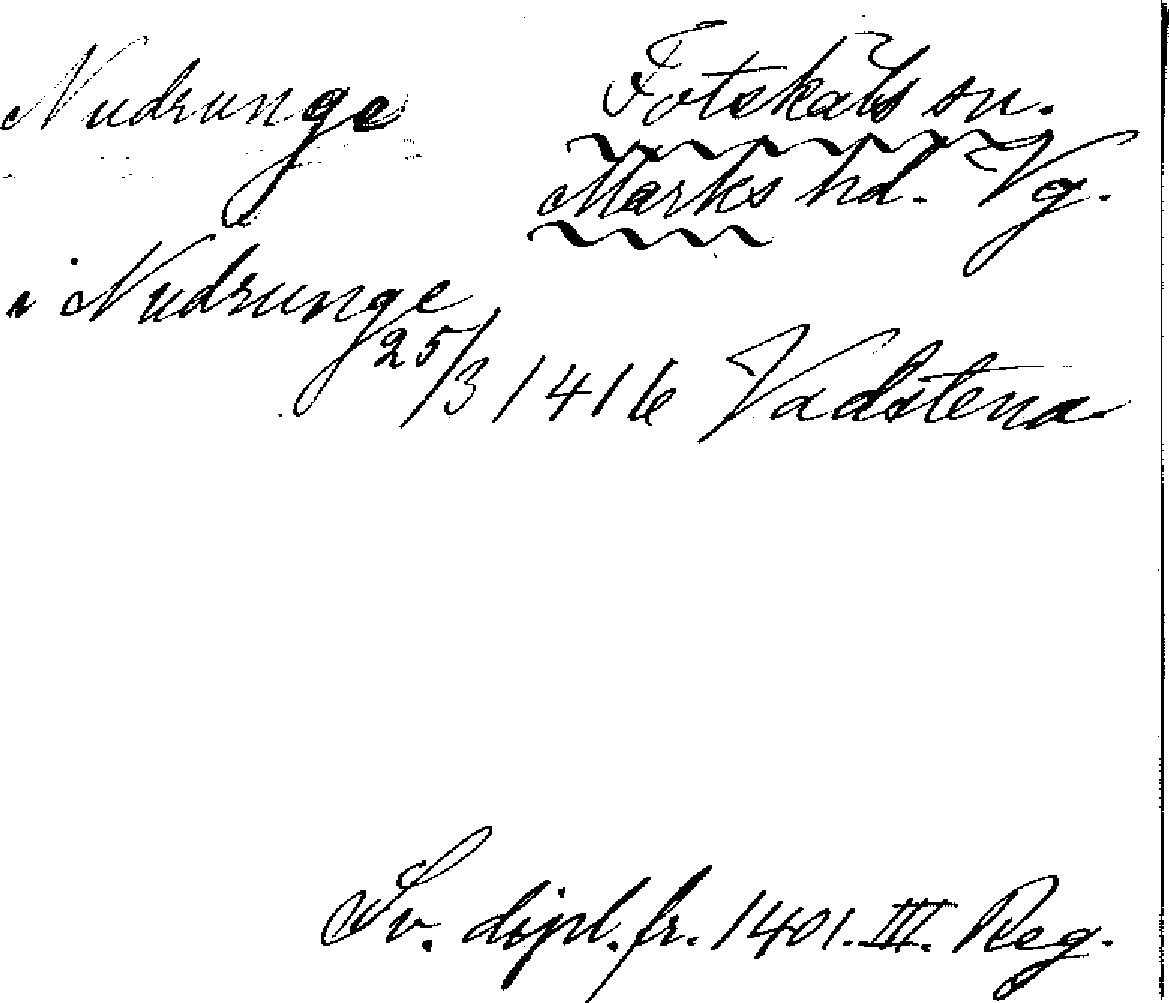 Nudrunge
Fotskäls sn.
Marks hd. Vg.
i Nudrunge
25/3 1416 Vadstena
Sv. dipl. fr. 1401. III. Reg.